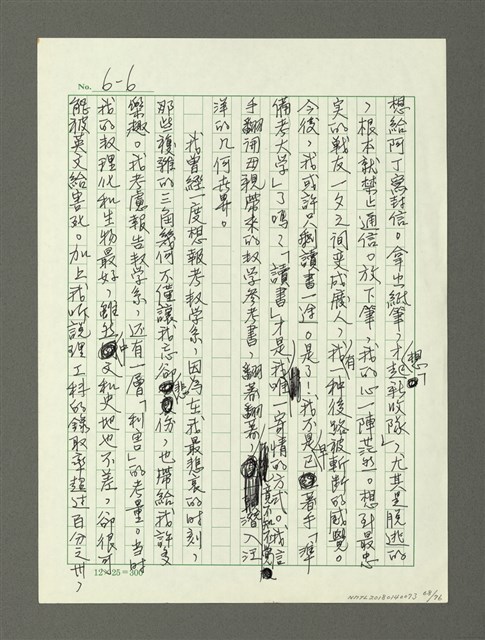 No. 6-6
想給阿丁寫封信。拿出紙筆,才想起新收隊,尤其是脫逃的
,根本就禁止通信。放下筆,我的心一陣茫然。想到最忠
实的戰友一夕之间变成廢人,我有一种後路被斬断的感覺。
今後,我或許只剩讀書一途。是了!我不是早已著手「準
備考大学」了嗎?「讀書」才是我唯一寄情的方式。我信
手翻開母親帶來的数学參考書,翻著翻著,竟不知不覺潛入汪
洋的几何世界。
我曾經一度想報考数学系,因為在我最悲哀的时刻,
那些複雜的三角幾何不僅讓我忘卻悲伤,也帶給我許多
樂趣。我考慮報告数学系,还有一層「利害」的考量。当时
我的数理化和生物最好,雖然中文和史地也不差,卻很可
能被英文給害死。加上我听說理工科的錄取率超过百分之卅,
12×25=300
NMTL20180140073 68/76